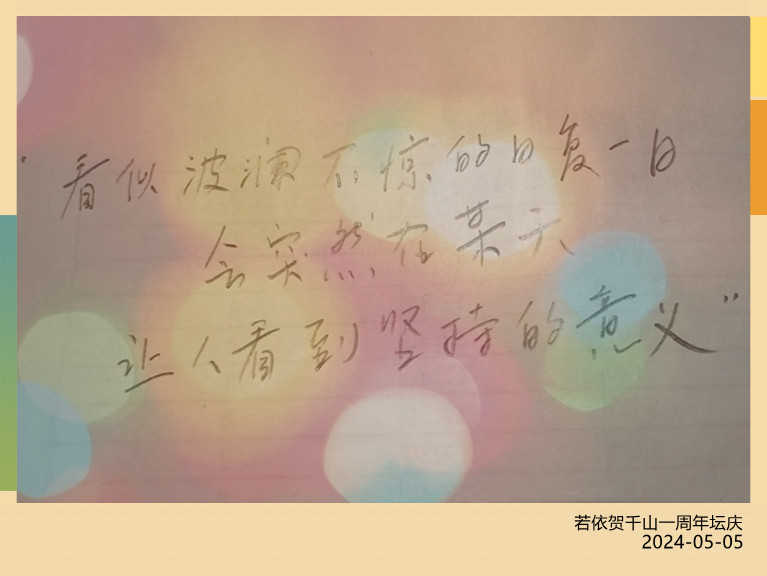 “看似波澜不惊的日复一日
会突然在某天
让人看到坚持的意义”
若依贺千山一周年坛庆
2024-05-05